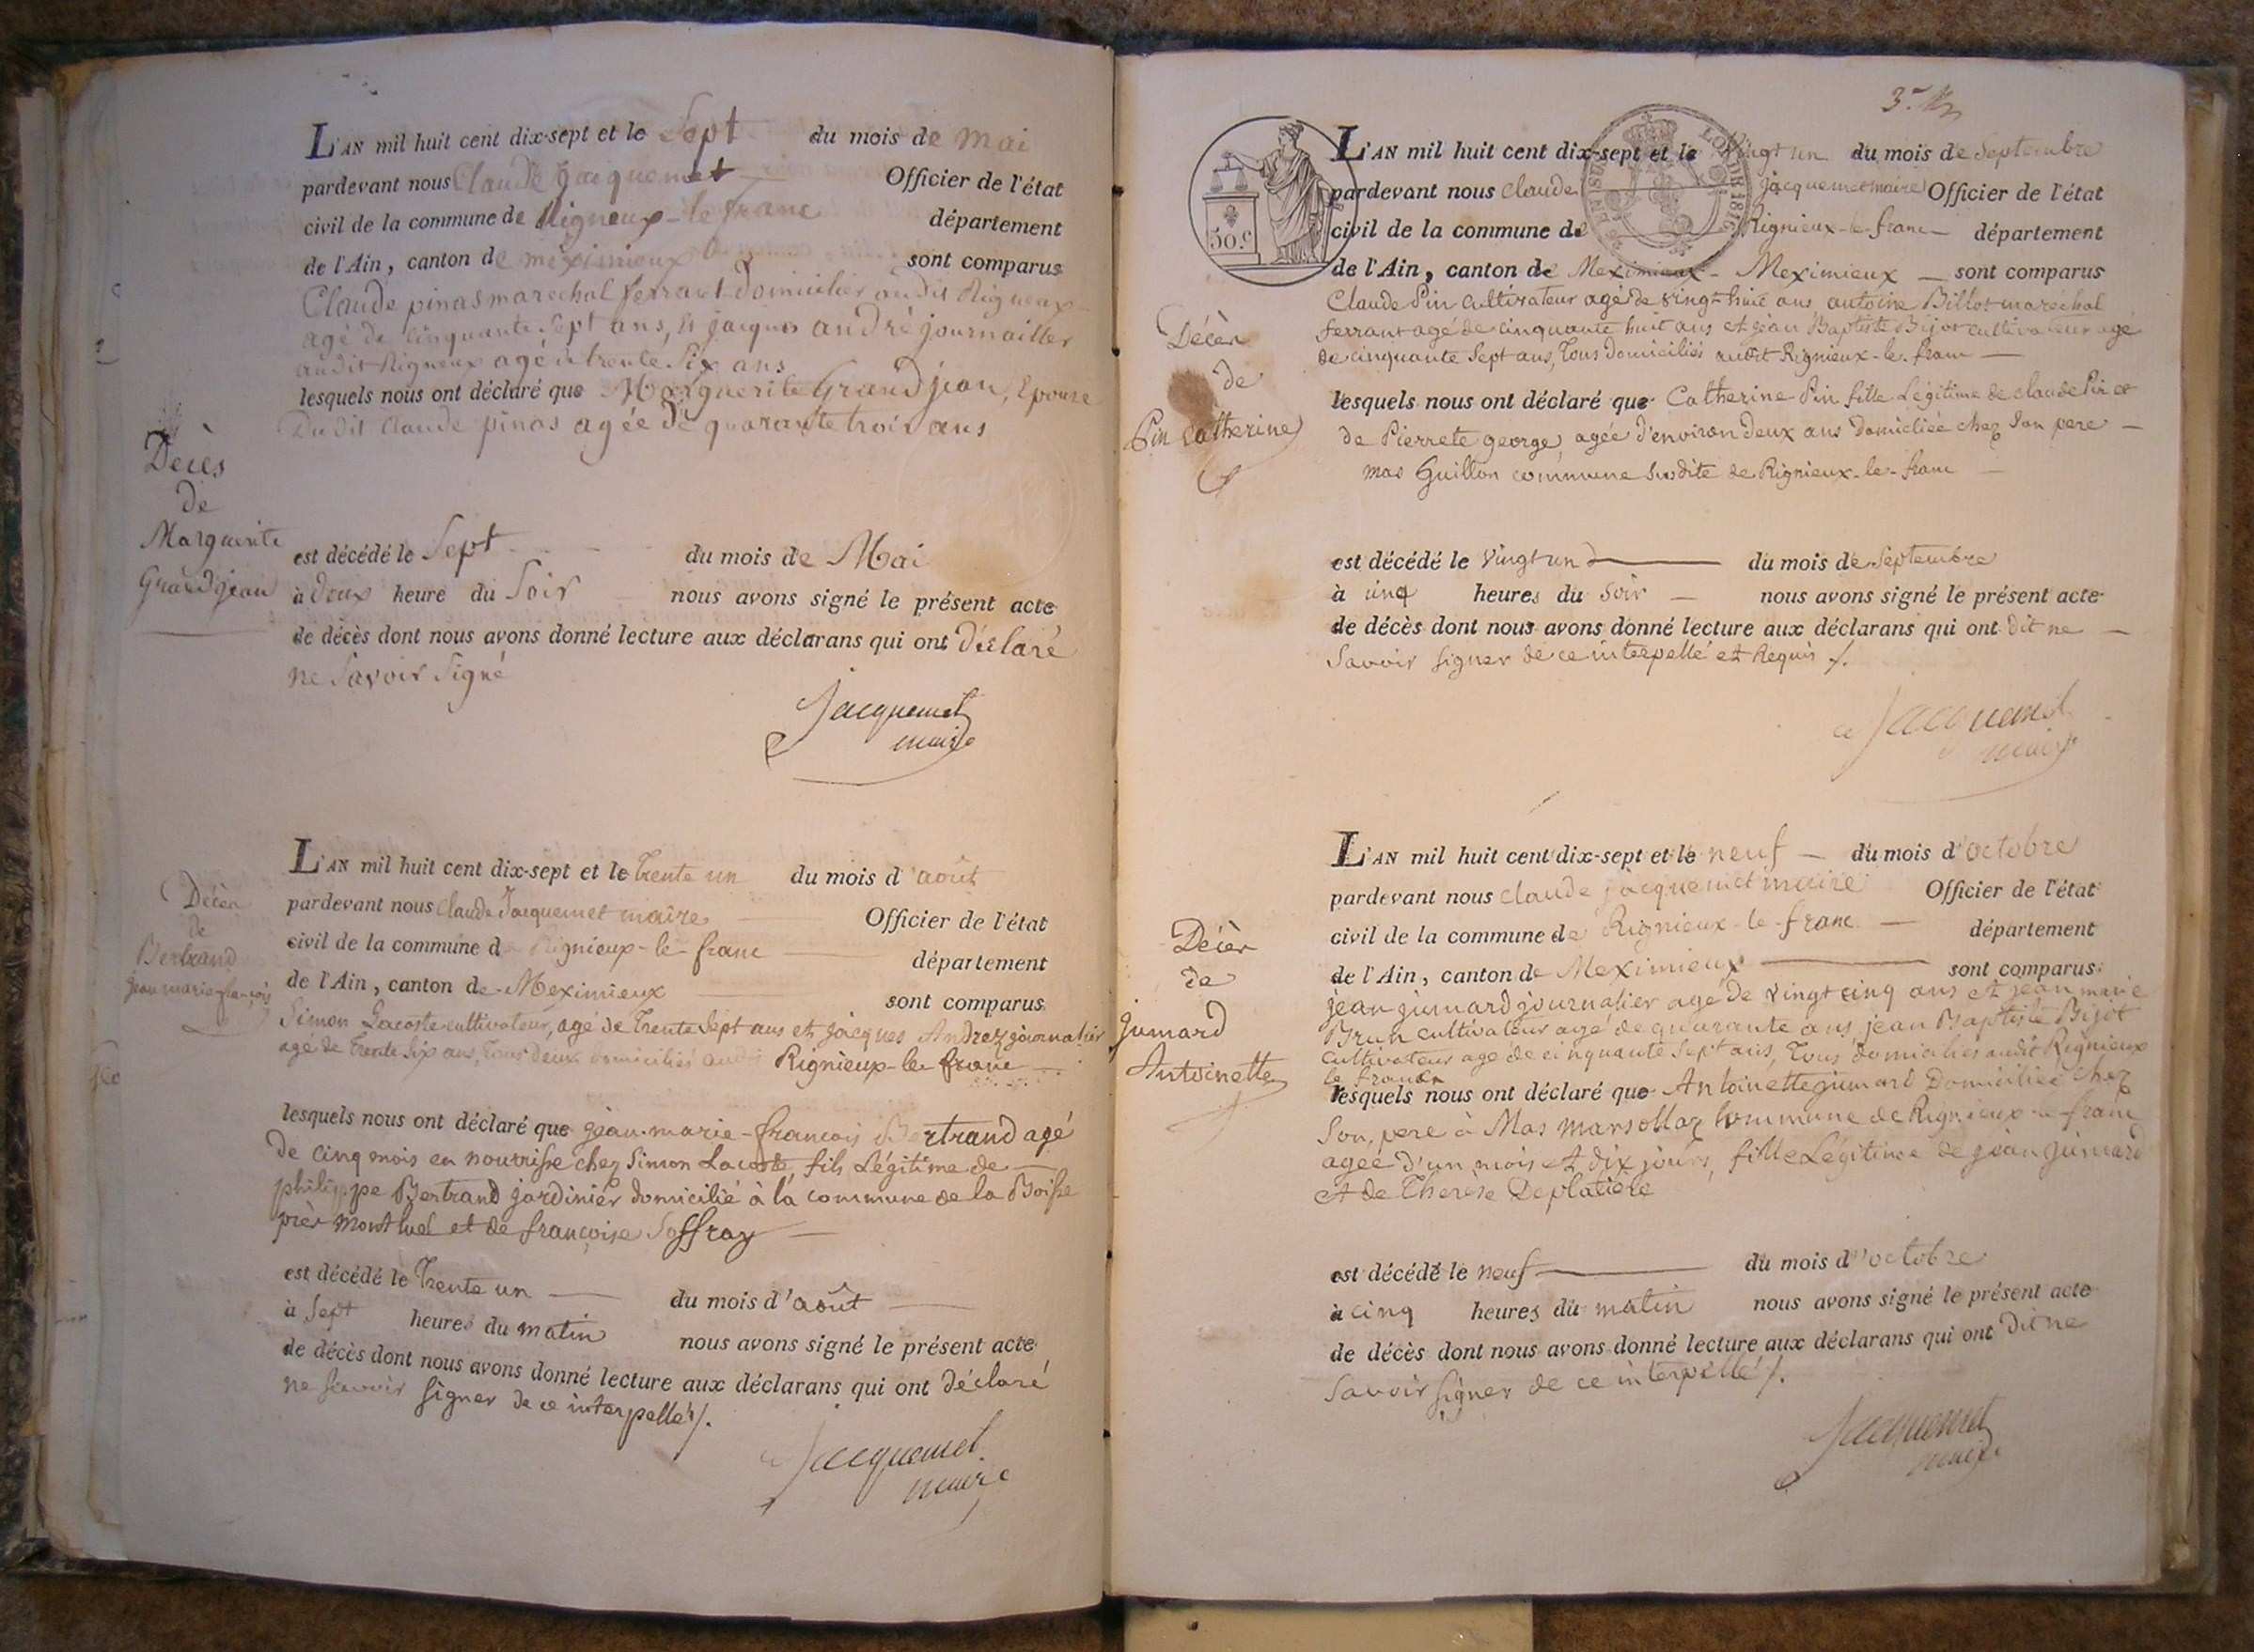 L'AN mil huit cent dix-sept et le Sept du mois de mai
pardevant nous Claude Jacquemet Officier de l'état
civil de la commune de Rigneux-le franc département
de l'Ain, canton de méximieux sont comparus
Claude pinas marechal ferrant domicilier audit Rigneux
agé de cinquante sept ans, et jacques andré journailler
audit Rigneux agé de trente Six ans
lesquels nous ont déclaré que Marguerite Grandjean, Epouse
Dudit Claude pinas agée de quarante trois ans
Décès
de
Marguerite
Grandjean
est décédé le Sept du mois de Mai
à deux heure du Soir nous avons signé le présent acte
de décès dont nous avons donné lecture aux déclarans qui ont déclaré
ne Savoir Signé
Jacquemet
maire
L'AN mil huit cent dix-sept et le trente un du mois d'août
pardevant nous Claude Jacquemet maire Officier de l'état
civil de la commune d Rignieux-le-franc département
de l'Ain, canton de Meximieux sont comparus
Simon Lacoste cultivateur, agé de trente sept ans et jacques Andrez journalier
agé de trente six ans, tous deux domiciliés audit Rignieux-le-franc
Décès
de
Bertrand
jean marie françois
lesquels nous ont déclaré que jean-marie-françois Bertrand agé
de cinq mois en nourrisse chez Simon Lacoste, fils Légitime de
philippe Bertrand jardinier domicilié à la commune de la Boisse
près Montluel et de françoise Soffray
est décédé le trente un du mois d'août
à sept heures du matin nous avons signé le présent acte
de décès dont nous avons donné lecture aux déclarans qui ont déclaré
ne savoir signer de ce interpellé /.
Jacquemet
maire
50.c
1816
L'AN mil huit cent dix-sept et le vingt un du mois de septembre
pardevant nous claude jacquemet maire Officier de l'état
civil de la commune de Rignieux-le-franc département
de l'Ain, canton de Meximieux - Meximieux sont comparus
Claude Pin cultivateur agé de vingt huit ans antoine Billot maréchal
ferrant agé de cinquante huit ans et jean Baptiste Bijot cultivateur agé
de cinquante sept ans, tous domiciliés audit Rignieux-le-franc
Décès
de
Pin Catherine
lesquels nous ont déclaré que Catherine Pin fille Légitime de claude Pin et
de Pierrete george, agée d'environ deux ans domiciliée chez son pere
mas Guillon commune susdite de Rignieux-le-franc
est décédé le vingt un du mois de septembre
à cinq heures du soir nous avons signé le présent acte
de décès dont nous avons donné lecture aux déclarans qui ont dit ne
savoir signer de ce interpellé et Requis /.
Jacquemet
maire
L'AN mil huit cent dix-sept et le neuf du mois d'octobre
pardevant nous claude jacquemet maire Officier de l'état
civil de la commune de Rignieux-le-franc département
de l'Ain, canton de Meximieux sont comparus
jean jumard journalier agé de vingt cinq ans et jean marie
Brun cultivateur agé de quarante ans, jean Baptiste Bijot
cultivateur agé de cinquante sept ans, tous domiciliés audit Rignieux
le franc
Décès
de
jumard
Antoinette
lesquels nous ont déclaré que Antoinette jumard domiciliée chez
son pere à Mas Marsollaz commune de Rignieux-le franc
agée d'un mois et dix jours, fille Légitime de jean jumard
et de Therèse Deplatiere
est décédé le neuf du mois d'octobre
à cinq heures du matin nous avons signé le présent acte
de décès dont nous avons donné lecture aux déclarans qui ont dit ne
savoir signer de ce interpellé /.
Jacquemet
maire